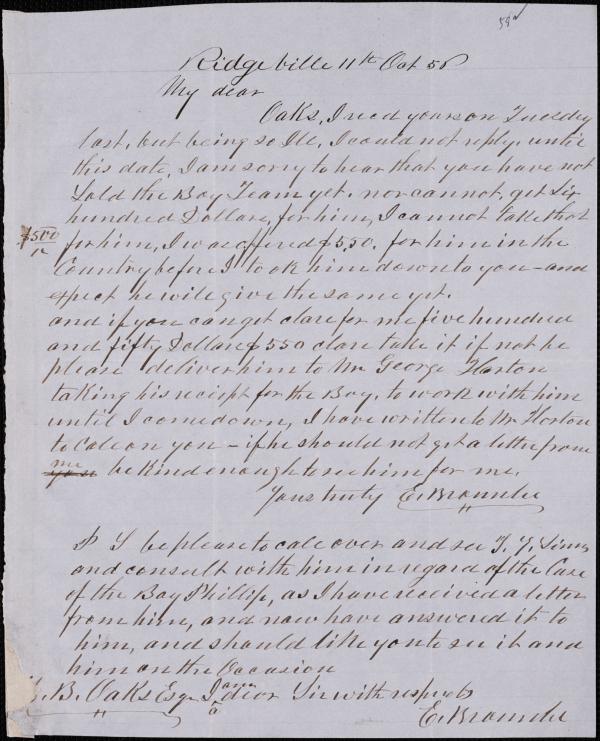 59
Ridgeville 11th Oct 56
My dear
Oaks, I recd yours on Tuesday
last, but being so Ill, I could not reply, until
this date, I am sorry to hear that you have not
Sold the Boy Team yet. nor cannot, get Six
hundred Dollars, for him, I cannot take that
$500
for him, I was offered $550. for him in the
Country before I took him down to you – and
expect he will give the same yet.
and if you can get clare for me five hundred
and fifty Dollars $550 clare take it if not be
please deliver him to Mr George Horton
taking his reciept for the Boy, to work with him
until I come down, I have written to Mr Horton
to Cale on you – if he should not get a letter from
me be kind enough to see him for me,
Yours truly E. Brounde
P S be please to cale over and see T. Y. Sims
and consult with him in regard of the Case
of the Boy Phillip, as I have received a letter
from him, and now have answered it to
him, and should like you to see it and
him on the Occasion
B. Oaks Esqr I am dear Sir with respects
E. Brounde